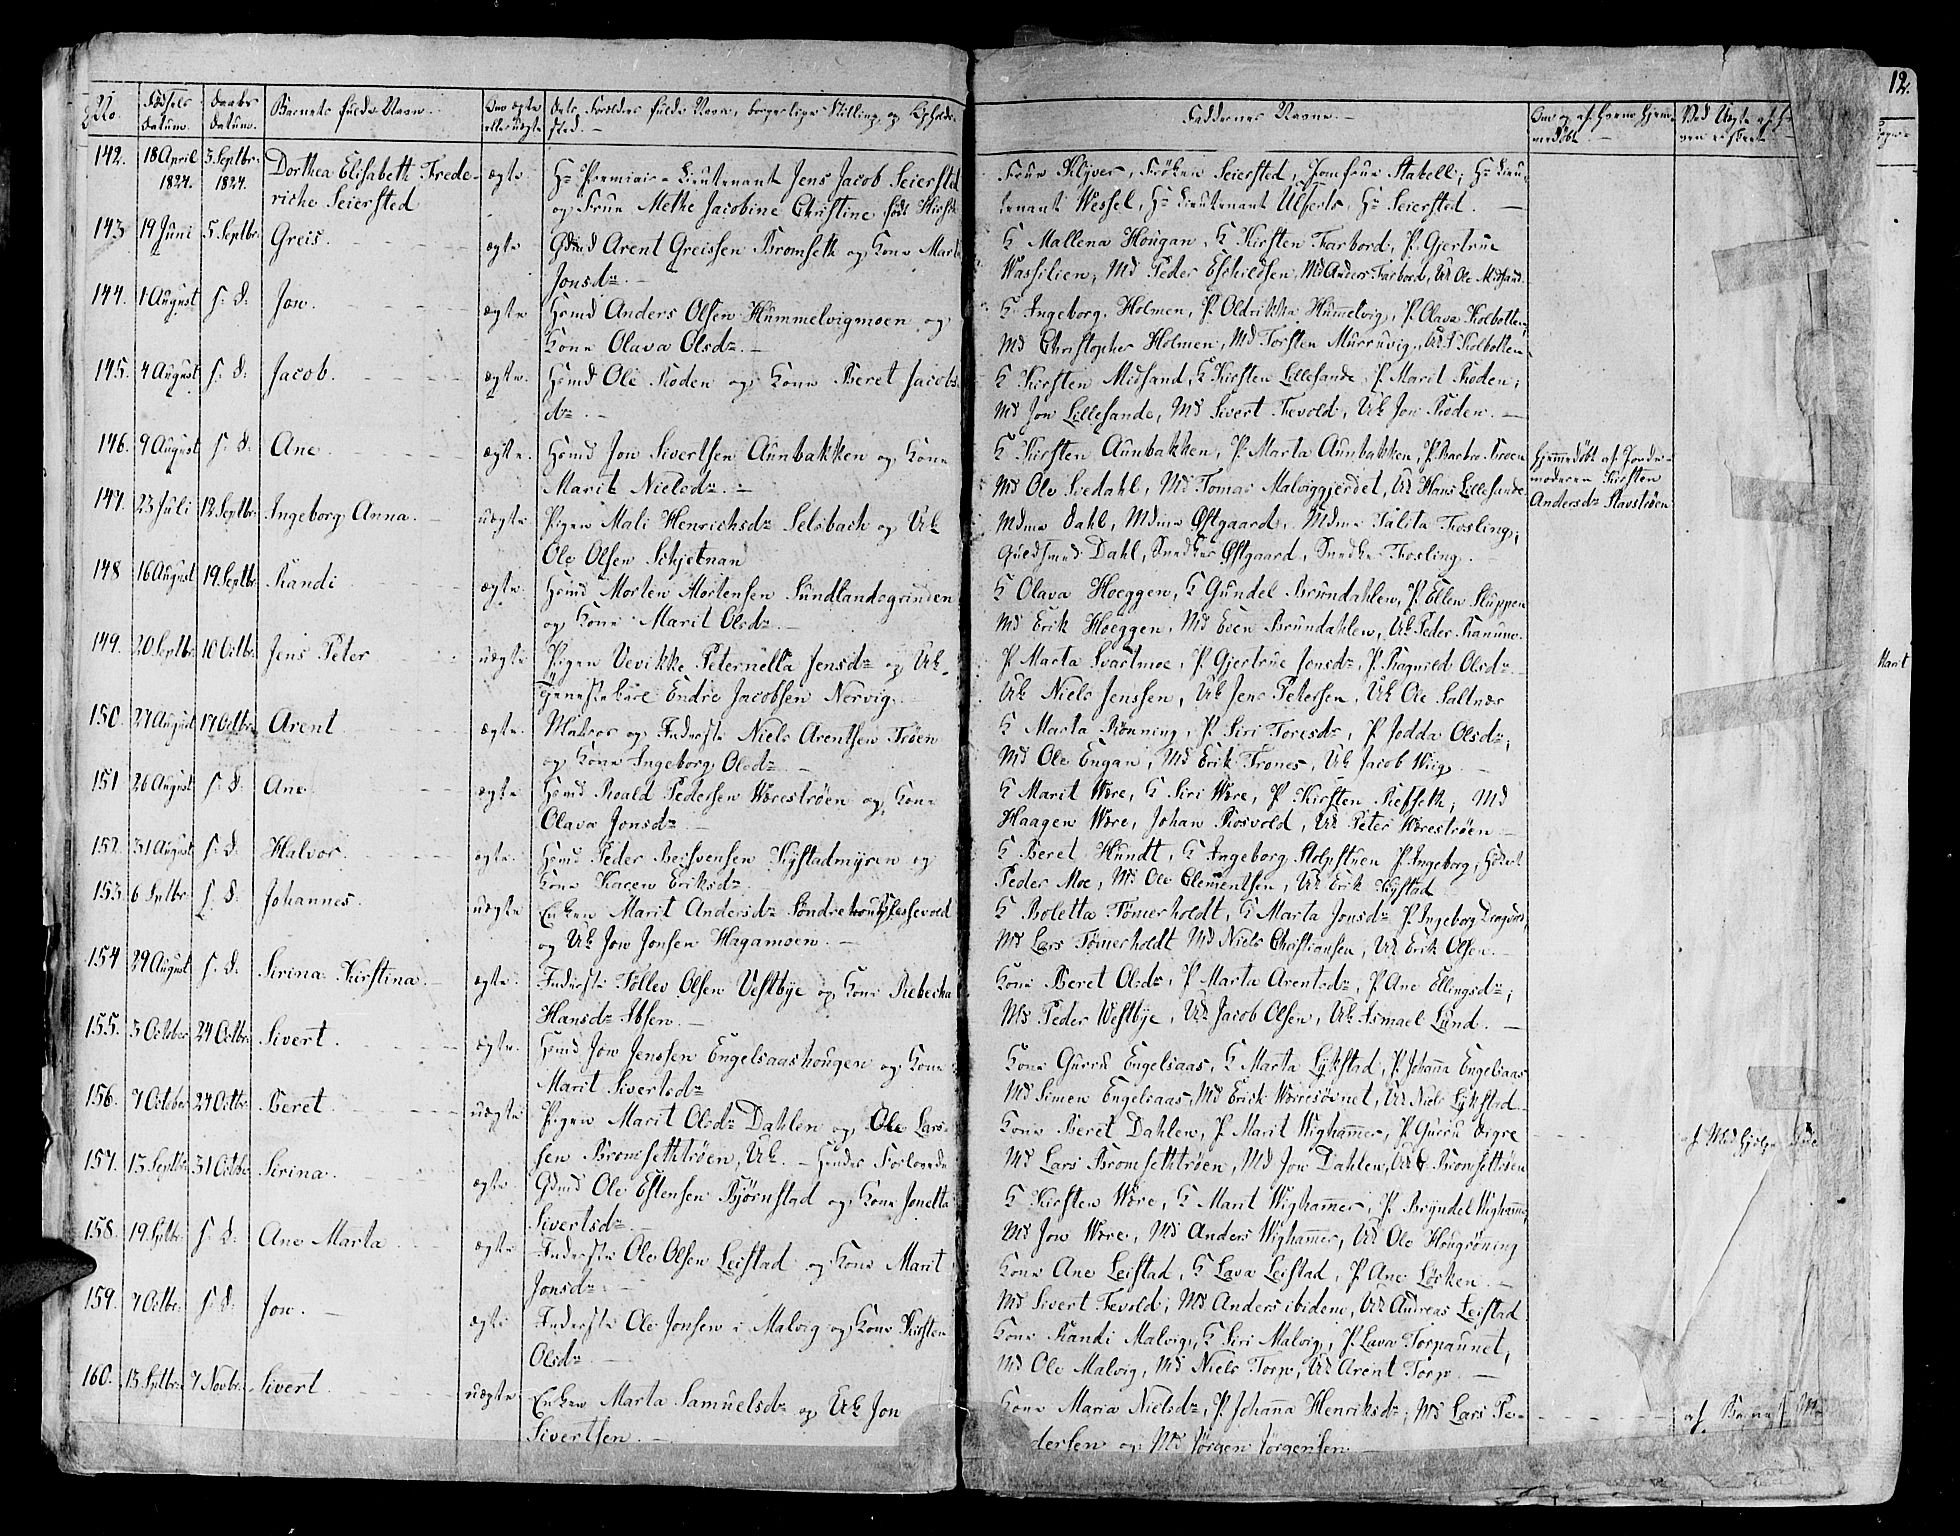 12.
No Fødsels Datum. Daabs Datum. Barnets fulde Navn. Om ægte eller uægte Forældres fulde Navn, borgerlige Stilling og Opholds-
sted. —
Faddernes Navne. —
142. 18 April 1824. 5 Septbr. 1824. Dorthea Elisabeth Frede-
riche Seiersted
ægte Hr Premiair-Lieutenant Jens Jacob Seiersted
og Frue Methe Jacobine Christine født
Frue Klÿver, Frøken Seiersted, Jomfrue Stabell, Hr Lieu-
tenant Wessel, Hr Lieutenant Ulferts, Hr Seiersted. —
143 19 Juni 5 Septbr. Greis. ægte Gdmd Arent Greissen Bromseth og Kone Marit
Jonsdr —
K Mallena Hougan, K Kirsten Farbord, P. Gjertrue
Wassilien, Md Peder Eskildsen, Md Anders Farbord, Uk Ole Midsand.
144. 1 August s. d. Jon. ægte Hsmd Anders Olsen Hummelvigmoen og
Kone Olava Olsdr. —
K Ingeborg Holmen, P. Oldrikka Hummelvig, P. Olava Kolbotten,
Md Christopher Holmen, Md Torsten Murruvig, Uk Kolbotten
145. 4 August s. d. Jacob. ægte. Hsmd Ole Roden og Kone Beret Jacobs
dr. —
K Kirsten Midsand, K Kirsten Lillesande, P. Marit Roden,
Md Jon Lillesande, Md Sivert Tevold, Uk Jon Roden. —
146. 9 August s. d. Ane ægte. Hsmd Jon Sivertsen Aunbakken og Kone
Marit Nielsdr. —
K Kirsten Aunbakken, P. Marta Aunbakken, P. Barbro Troen
Md Ole Svedahl, Md Tomas Malviggjerdet, Uk Hans Lillesande
Hjemmedøbt af Jorde-
moderen Kirsten
Andersdr Stavstrøen
147. 23 Juli 12 Septbr. Ingeborg Anna. uægte Pigen Mali Henrichsdr Selsbach og Uk
Ole Olsen Schjetnan
Mdme Dahl, Mdme Østgaard, Mdme Talita Fosling,
Guldsmed Dahl, Snedker Østgaard, Snedker Fosling.
148 16 August 19. Septbr. Randi ægte. Hsmd Morten Mortensen Sundlandsgrinden
og Kone Marit Olsdr. —
K Olava Hoeggen, K Gundel Brundahlen, P. Ellen Sluppen
Md Erik Hoeggen, Md Even Brundahlen, Uk Peder Ranum.
149. 20 Septbr. 10 Octbr. Jens Peter uægte Pigen Vevikke Peternella Jensdr og Uk.
Tjenestekarl Endre Jacobsen Nervig.
P. Marta Svartmoe, P. Gjertrue Jonsdr, P. Ragnild Olsdr.
Uk Niels Jenssen, Uk Jens Petersen, Uk Ole Saltnæs
150. 27 August 17 Octbr. Arent ægte. Matros og Inderste Niels Arentsen Trøen
og Kone Ingeborg Olsdr —
K Marta Rönning, P. Siri Toresdr, P. Jodda Olsdr;
Md Ole Engan, Md Erik Trones, Uk Jacob Wiig. —
151 26 August s. d. Ane ægte Hsmd Roald Pedersen Wærestrøen og Kone
Olava Jonsdr. —
K Marit Wære, K Siri Wære, P. Kirsten Refseth, Md
Haagen Wære, Johan Rosvold, Uk Peter Wærestrøen. —
152. 31 August s. d. Halvor. ægte. Hsmd Peder Berfvensen Kystadmÿren og
Kone Karen Eriksdr.
K Beret Hundt, K Ingeborg Stolpstuen P. Ingeborg
Peder Moe, Md Ole Clementsen, Uk Erik Kÿstad
153. 6 Sptbr. s. d. Johannes. uægte Enken Marit Andersdr
og Uk Jon Jonsen Hagamoen. —
K Boletta Tömerholdt, K Marta Jonsdr P. Ingeborg Dragvold,
Md Lars Tömerholdt Md Niels Christiansen, Uk Erik Olsen. —
154 29 August s. d. Serina Kirstina. ægte. Inderste Tollev Olsen Vestbÿe og Kone Rebecka
Hansdr Ibsen. —
Kone Beret Olsdr, P. Marta Arentsdr, P. Ane Ellingsdr;
Md Peder Westbÿe, Uk Jacob Olsen, Uk Asmael Lund. —
155. 3 October 24 Octbr. Sivert ægte. Hsmd Jon Jenssen Engelsaashougen og Kone
Marit Sivertsdr
Kone Gurru Engelsaas, K Marta Lÿkstad, P. Johanna Engelsaas
Md Simen Engelsaas, Md Erick Wæresövnet, Uk Niels Lÿkstad.
156. 7 October 24 Octbr. Beret uægte Pigen Marit Olsdr Dahlen og Ole Lars-
sen Bromsethtrøen, Uk. — hendes Forlovede
Kone Beret Dahlen, P. Marit Wighammer, P. Gurru Digre
Md Lars Bromsethtrøen, Md Jon Dahlen, Uk E Bromsettrøen
157. 13 Septbr 31 Octbr Serina. ægte. Gdmd Ole Estensen Bjørnstad og Kone Jonetta
Sivertsdr. —
K Kirsten Wære, K Marit Wighammer, P. Brÿndel Wighammer
Md Jon Wære, Md Anders Wighammer, Uk Ole Hougröning
158. 19. Sptbr. s. d. Ane Marta ægte Inderste Ole Olsen Leistad og Kone Marit
Jonsdr
Kone Ane Leistad, K Lava Leistad, P. Ane Løcken. —
Md Sivert Tevold, Md Anders ibidem, Uk Andreas Leistad
159. 7 Octbr. s. d. Jon. ægte Inderste Ole Jonsen i Malvig og Kone Kirsten
Olsdr. —
Kone Randi Malvig, K Siri Malvig, P. Lava Torpaunet,
Md Ole Malvig, Md Niels Torp, Uk Arent Torp. —
160. 13 Sptbr. 7 Novbr. Sivert uægte Enken Marta Samuelsdr og Uk Jon
Sivertsen. —
Kone Maria Nielsdr, P. Johanna Henriksdr, Md Lars Pe-
dersen og Md Jörgen Jörgensen —